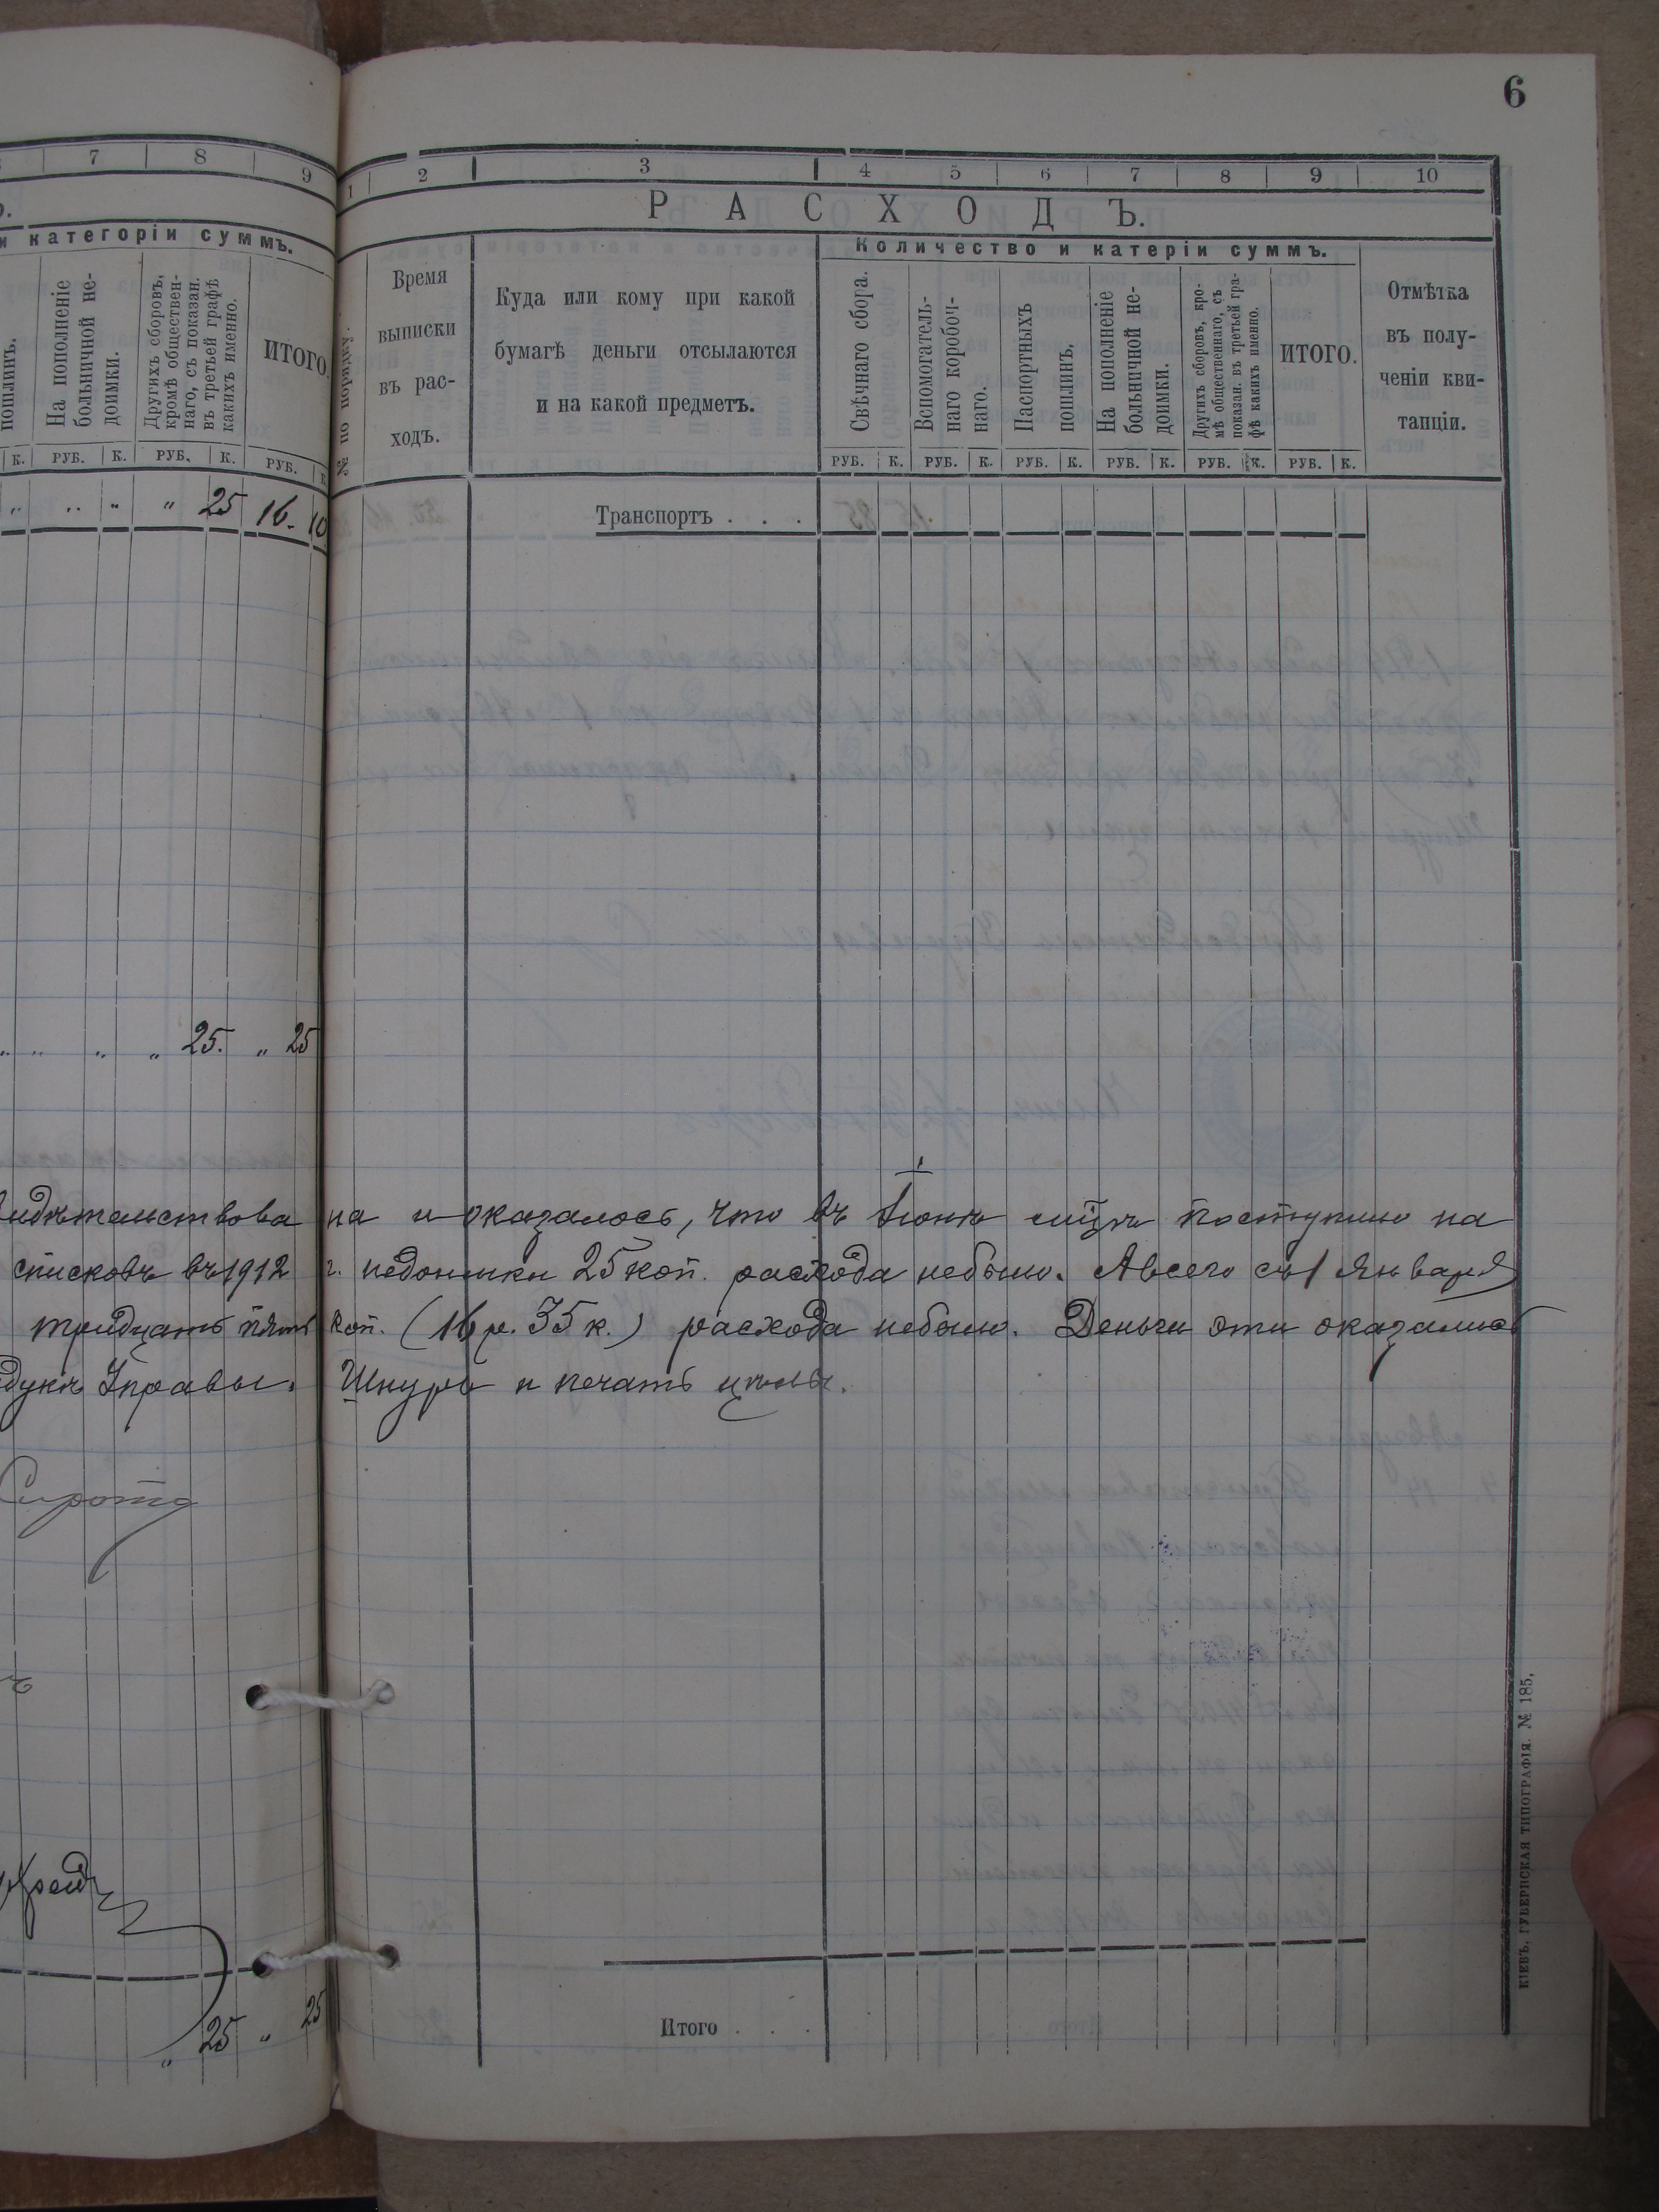 6
7 8 9
и категоріи суммъ.
пошлинъ.
На пополненіе больничной недоимки.
Другихъ сборовъ, кромѣ общественнаго, съ показан. въ третьей графѣ какихъ именно.
ИТОГО.
К. РУБ. К. РУБ. К. РУБ. К
„ „ „ „ 25 16. 10
„ „ „ „ 25. „ 25
1 2 3 4 5 6 7 8 9 10
РАСХОДЪ.
Количество и катеріи суммъ.
№ по порядку.
Время
выписки
въ рас-
ходъ.
Куда или кому при какой
бумагѣ деньги отсылаются
и на какой предметъ.
Свѣчнаго сбора.
Вспомогатель-
наго коробоч-
наго.
Паспортныхъ
пошлинъ.
На пополненіе
больничной не-
доимки.
Другихъ сборовъ, кро-
мѣ общественнаго, съ
показан. въ третьей гра-
фѣ какихъ именно.
ИТОГО.
Отмѣтка
въ полу-
ченіи кви-
танціи.
РУБ. К. РУБ. К. РУБ. К. РУБ. К. РУБ. К. РУБ. К.
Транспортъ . . .
идѣтельствова на и оказалось, что въ Іюнѣ м-цѣ поступило на
списковъ въ 1912 г. недоимки 25 коп. расхода небыло. А всего съ 1 Января
тридцать пять коп. (16 р. 35 к.) расхода небыло. Деньги эти оказались
дукѣ Управы. Шнуръ и печать цѣлы.
Сирота
„ 25 „ 25
Итого . . .
КІЕВЪ, ГУБЕРНСКАЯ ТИПОГРАФІЯ. № 185.